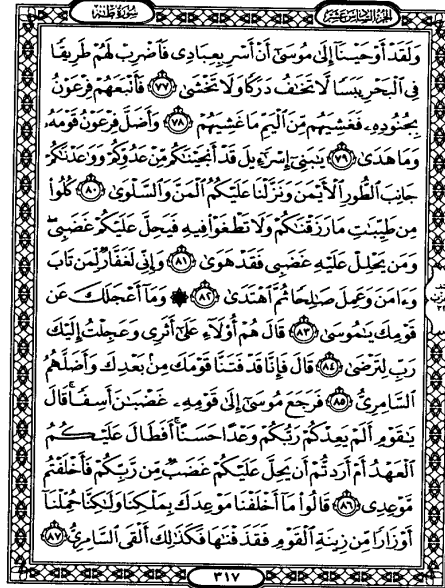 سُورَةُ طه
الجزء السادس عشر
وَلَقَدْ أَوْحَيْنَآ إِلَىٰ مُوسَىٰٓ أَنْ أَسْرِ بِعِبَادِى فَٱضْرِبْ لَهُمْ طَرِيقًا
فِى ٱلْبَحْرِ يَبَسًا لَّا تَخَـٰفُ دَرَكًا وَلَا تَخْشَىٰ ٧٧ فَأَتْبَعَهُمْ فِرْعَوْنُ
بِجُنُودِهِۦ فَغَشِيَهُم مِّنَ ٱلْيَمِّ مَا غَشِيَهُمْ ٧٨ وَأَضَلَّ فِرْعَوْنُ قَوْمَهُۥ
وَمَا هَدَىٰ ٧٩ يَـٰبَنِىٓ إِسْرَٰٓءِيلَ قَدْ أَنجَيْنَـٰكُم مِّنْ عَدُوِّكُمْ وَوَٰعَدْنَـٰكُمْ
جَانِبَ ٱلطُّورِ ٱلْأَيْمَنَ وَنَزَّلْنَا عَلَيْكُمُ ٱلْمَنَّ وَٱلسَّلْوَىٰ ٨٠ كُلُوا۟
مِن طَيِّبَـٰتِ مَا رَزَقْنَـٰكُمْ وَلَا تَطْغَوْا۟ فِيهِ فَيَحِلَّ عَلَيْكُمْ غَضَبِى ۖ
وَمَن يَحْلِلْ عَلَيْهِ غَضَبِى فَقَدْ هَوَىٰ ٨١ وَإِنِّى لَغَفَّارٌ لِّمَن تَابَ
وَءَامَنَ وَعَمِلَ صَـٰلِحًا ثُمَّ ٱهْتَدَىٰ ٨٢ ۞ وَمَآ أَعْجَلَكَ عَن
قَوْمِكَ يَـٰمُوسَىٰ ٨٣ قَالَ هُمْ أُو۟لَآءِ عَلَىٰٓ أَثَرِى وَعَجِلْتُ إِلَيْكَ
رَبِّ لِتَرْضَىٰ ٨٤ قَالَ فَإِنَّا قَدْ فَتَنَّا قَوْمَكَ مِنۢ بَعْدِكَ وَأَضَلَّهُمُ
ٱلسَّامِرِىُّ ٨٥ فَرَجَعَ مُوسَىٰٓ إِلَىٰ قَوْمِهِۦ غَضْبَـٰنَ أَسِفًا ۚ قَالَ
يَـٰقَوْمِ أَلَمْ يَعِدْكُمْ رَبُّكُمْ وَعْدًا حَسَنًا ۚ أَفَطَالَ عَلَيْكُمُ
ٱلْعَهْدُ أَمْ أَرَدتُّمْ أَن يَحِلَّ عَلَيْكُمْ غَضَبٌ مِّن رَّبِّكُمْ فَأَخْلَفْتُم
مَّوْعِدِى ٨٦ قَالُوا۟ مَآ أَخْلَفْنَا مَوْعِدَكَ بِمَلْكِنَا وَلَـٰكِنَّا حُمِّلْنَآ
أَوْزَارًا مِّن زِينَةِ ٱلْقَوْمِ فَقَذَفْنَـٰهَا فَكَذَٰلِكَ أَلْقَى ٱلسَّامِرِىُّ ٨٧
٣١٧